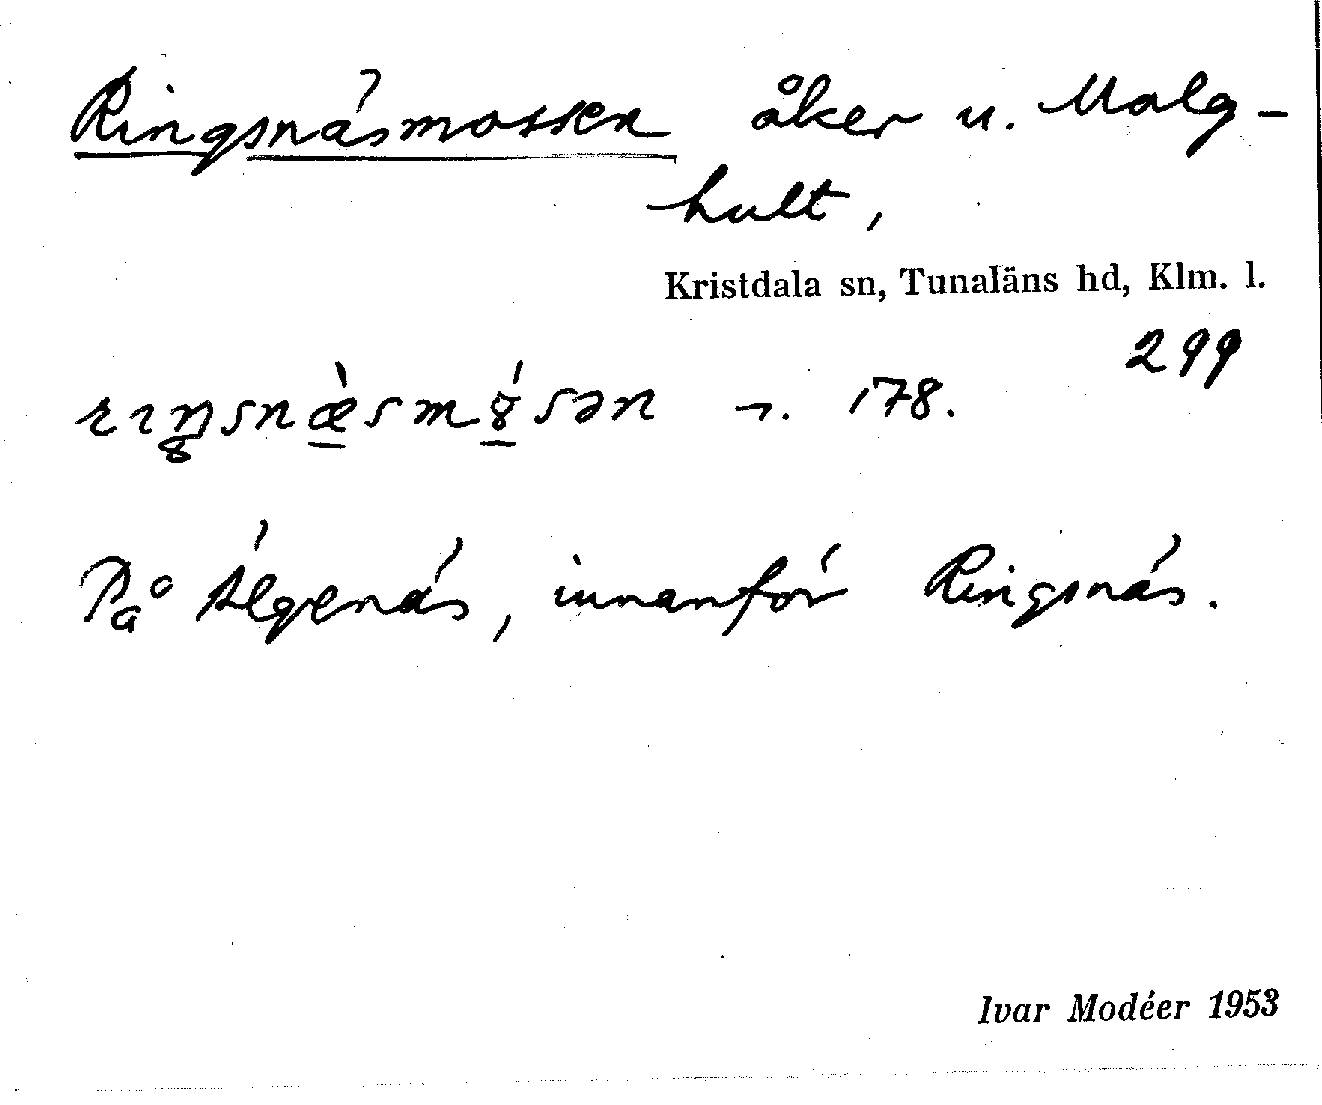 Ringsnäsmossen åker u. Malg-
hult,
Kristdala sn, Tunaläns hd, Klm. l.
299
178.
På Älgenäs, innanför Ringsnäs.
Ivar Modéer 1953